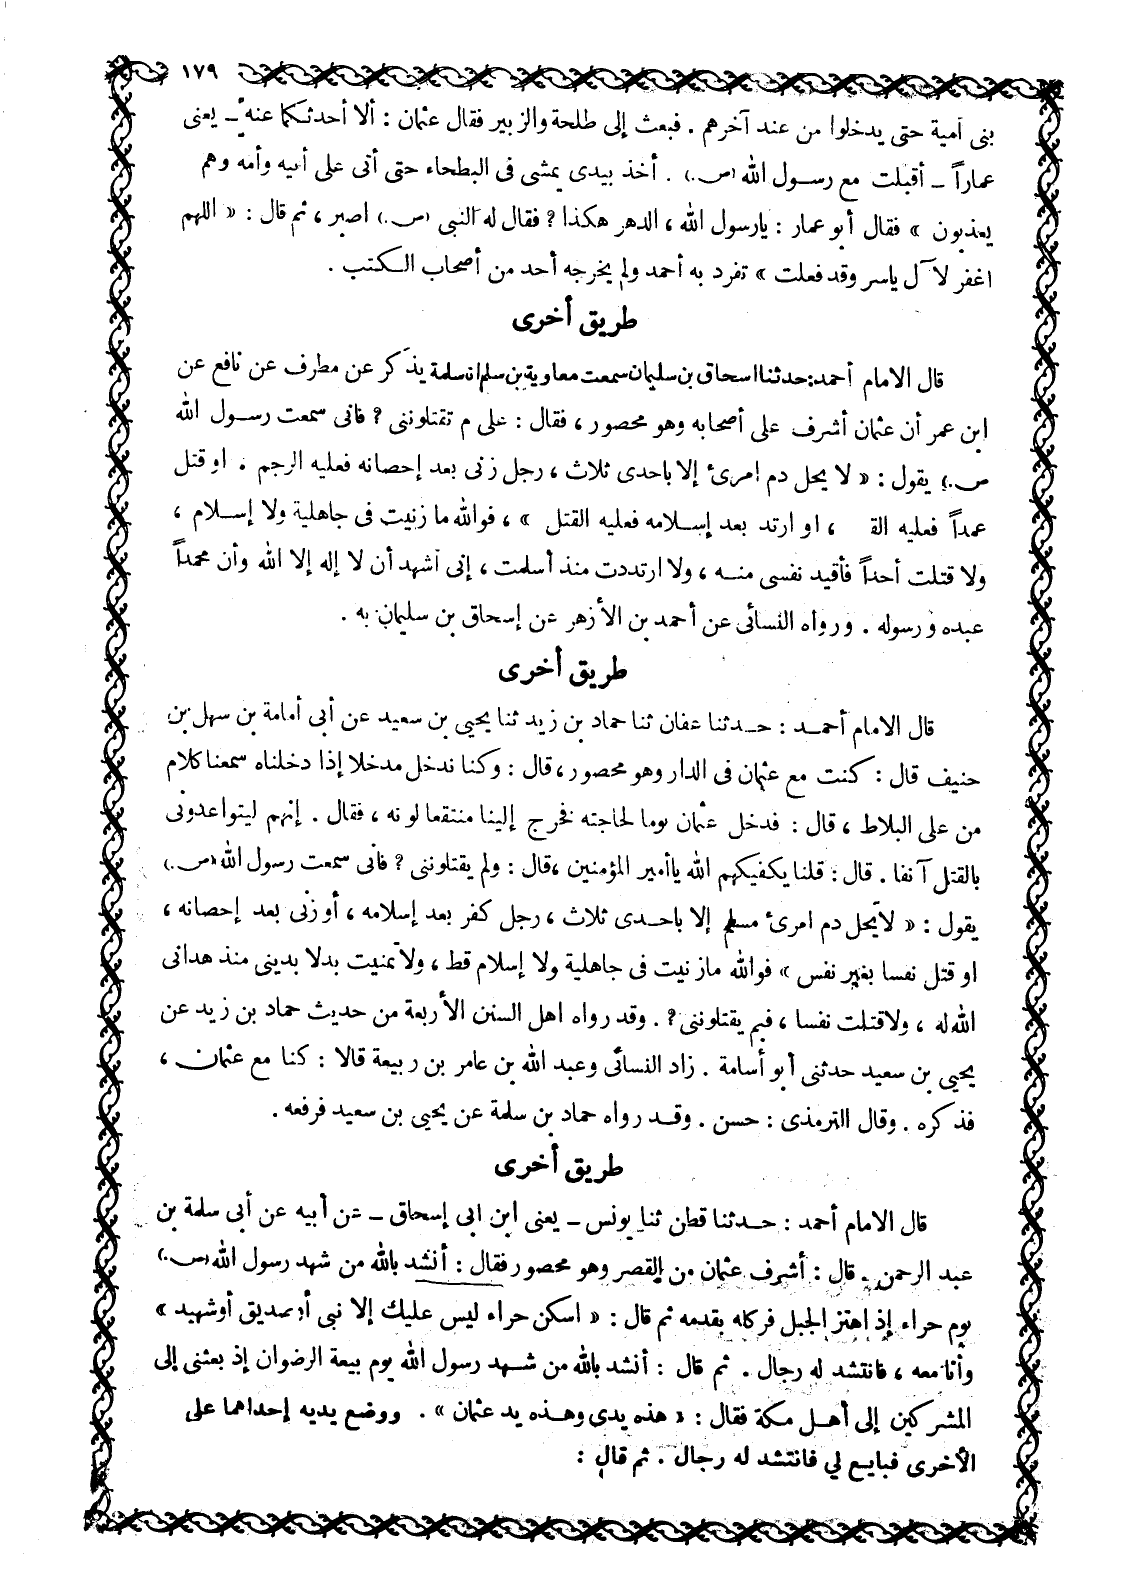 ١٧٩
بنى أمية حتى يدخلوا من عند آخرهم . فبعث إلى طلحة والزبير فقال عثمان : ألا أحدثكما عنه ـ يعنى
عماراً ـ أقبلت مع رسول الله (ص.) . أخذ بيدى يمشى فى البطحاء حتى أتى على أبيه وأمه وهم
يعذبون » فقال أبو عمار : يارسول الله ، الدهر هكذا ? فقال له النبى (ص.) اصبر ، ثم قال : « اللهم
اغفر لآل ياسر وقد فعلت » تفرد به أحمد ولم يخرجه أحد من أصحاب الكتب .
طريق أخرى
قال الامام أحمد : حدثنا اسحاق بن سليمان سمعت معاوية بن سلم ان سلمة يذكر عن مطرف عن نافع عن
ابن عمر أن عثمان أشرف على أصحابه وهو محصور ، فقال : على م تقتلونى ? فانى سمعت رسول الله
ص.) يقول : « لا يحل دم امرئ إلا باحدى ثلاث ، رجل زنى بعد إحصانه فعليه الرجم . او قتل
عمداً فعليه الق ، او ارتد بعد إسلامه فعليه القتل » ، فوالله ما زنيت فى جاهلية ولا إسلام ،
ولا قتلت أحداً فأقيد نفسى منه ، ولا ارتددت منذ أسلمت ، إنى أشهد أن لا إله إلا الله وأن محمداً
عبده ورسوله . ورواه النسائى عن أحمد بن الأزهر عن إسحاق بن سليمان به .
طريق أخرى
قال الامام أحمد : حدثنا عفان ثنا حماد بن زيد ثنا يحيى بن سعيد عن أبى أمامة بن سهل بن
حنيف قال : كنت مع عثمان فى الدار وهو محصور ، قال : وكنا ندخل مدخلا إذا دخلناه سمعنا كلام
من على البلاط ، قال : فدخل عثمان يوما لحاجته فخرج إلينا منتقعا لونه ، فقال . إنهم ليتواعدونى
بالقتل آنفا . قال : قلنا يكفيكهم الله ياأمير المؤمنين ، قال : ولم يقتلوننى ? فانى سمعت رسول الله (ص.)
يقول : « لا يحل دم امرئ مسلم إلا باحدى ثلاث ، رجل كفر بعد إسلامه ، أو زنى بعد إحصانه ،
او قتل نفسا بغير نفس » فوالله ما زنيت فى جاهلية ولا إسلام قط ، ولا تمنيت بدلا بدينى منذ هدانى
الله له ، ولا قتلت نفسا ، فبم يقتلوننى ? . وقد رواه اهل السنن الأربعة من حديث حماد بن زيد عن
يحيى بن سعيد حدثنى أبو أسامة . زاد النسائى وعبد الله بن عامر بن ربيعة قالا : كنا مع عثمان ،
فذكره . وقال الترمذى : حسن . وقد رواه حماد بن سلمة عن يحيى بن سعيد فرفعه .
طريق أخرى
قال الامام أحمد : حدثنا قطن ثنا يونس ـ يعنى ابن ابى إسحاق ـ عن أبيه عن أبى سلمة بن
عبد الرحمن . قال : أشرف عثمان من القصر وهو محصور فقال : أنشد بالله من شهد رسول الله (ص.)
يوم حراء إذ اهتز الجبل فركله بقدمه ثم قال : « اسكن حراء ليس عليك إلا نبى أو صديق أو شهيد »
وأنا معه ، فانتشد له رجال . ثم قال : أنشد بالله من شهد رسول الله يوم بيعة الرضوان إذ بعثنى إلى
المشركين إلى أهل مكة فقال : « هذه يدى وهذه يد عثمان » . ووضع يديه إحداهما على
الأخرى فبايع لي فانتشد له رجال . ثم قال :